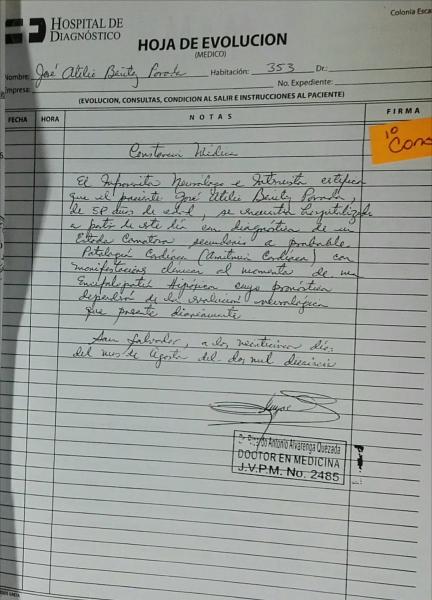 Colonia Esca
HOSPITAL DE
DIAGNÓSTICO
HOJA DE EVOLUCION
(MEDICO)
Nombre: José Atilio Benítez Habitación: 353 Dr.:
Empresa: No. Expediente:
(EVOLUCION, CONSULTAS, CONDICION AL SALIR E INSTRUCCIONES AL PACIENTE)
FECHA HORA NOTAS FIRMA
10
Cons
Constancia Médica
El Neurólogo e Internista certifica
que el paciente José Atilio Benítez
de 58 años de edad, se encuentra hospitalizado
a partir de este día con diagnóstico de un
Estado Comatoso secundario a probable
Patología Cardiaca Cardiaca) con
manifestaciones clínicas al momento de una
Encefalopatía Hipóxica cuyo pronóstico
dependerá de la evolución neurológica
que presente diariamente
San Salvador, a los días
del mes de Agosto del dos mil
Dr. Ricardo Antonio Alvarenga Quezada
DOCTOR EN MEDICINA
J.V.P.M. No. 2485